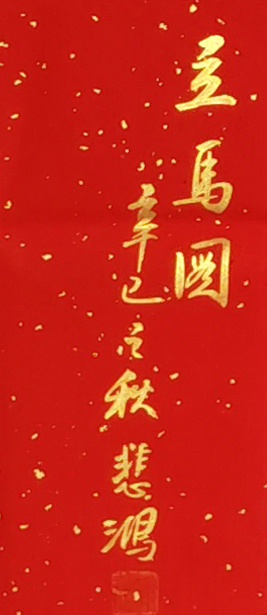 立馬圖
辛巳之秋悲鴻